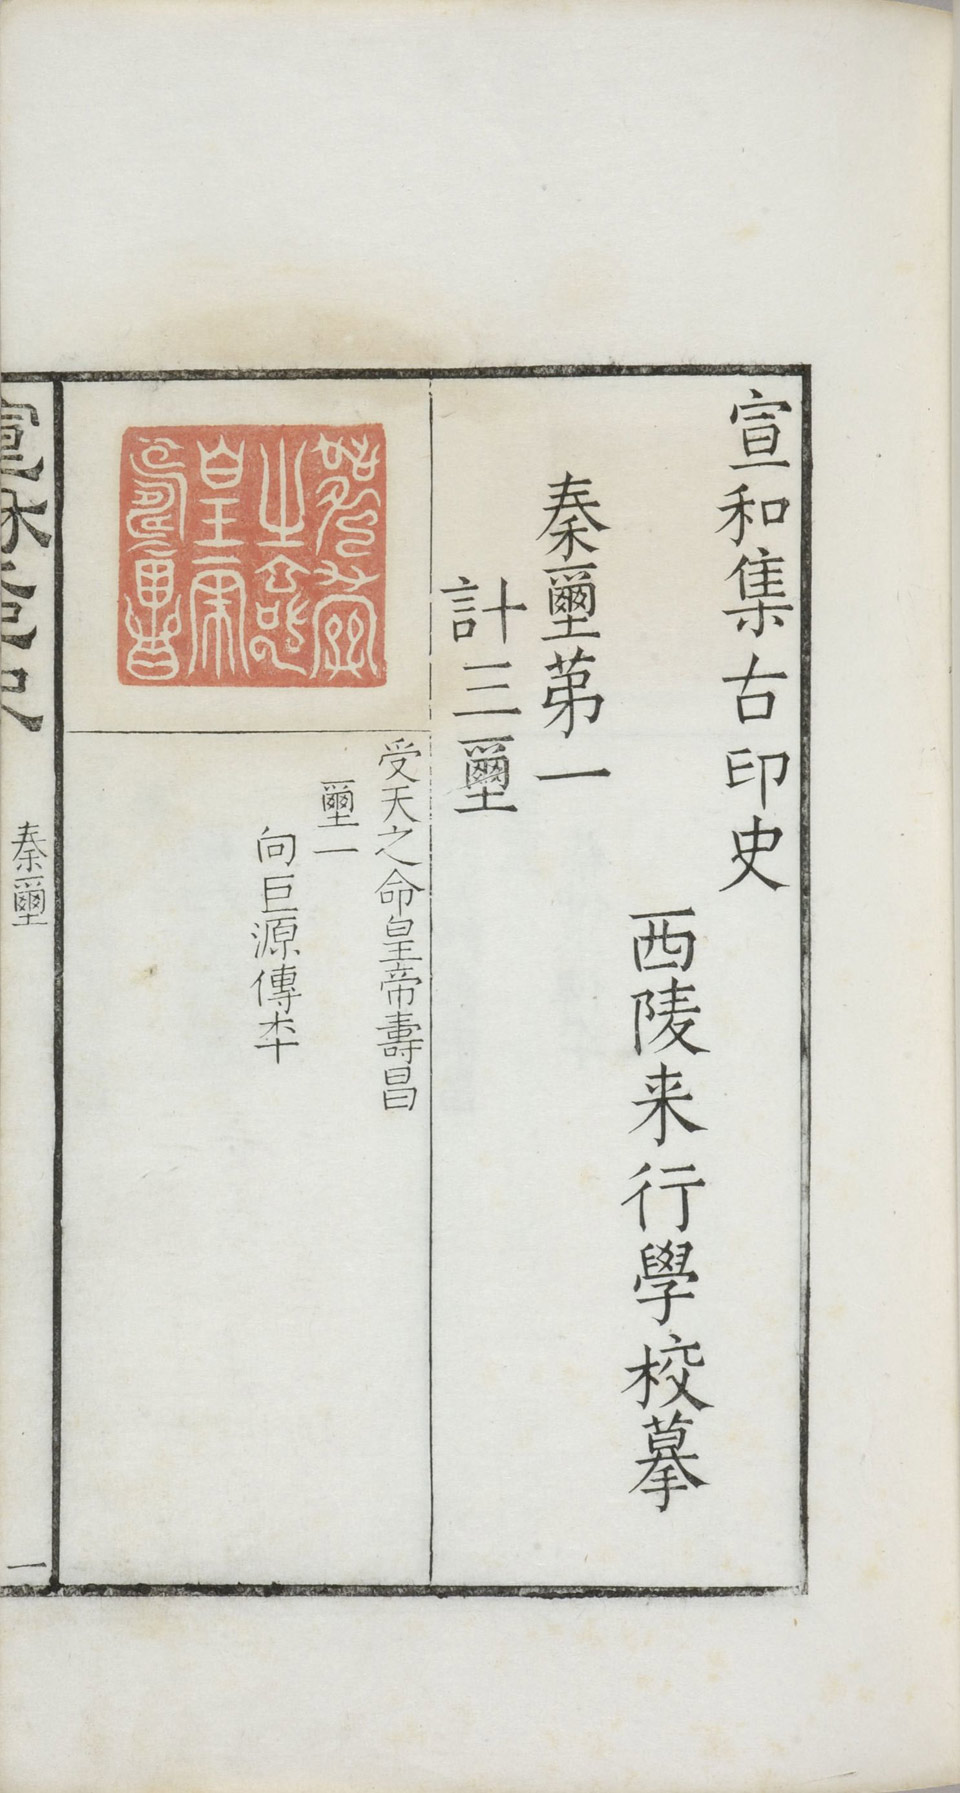 宣和集古印史
西陵来行學校摹
秦璽苐一
計三璽
受天之命皇帝壽昌
璽一
向巨源傳本
秦璽
一